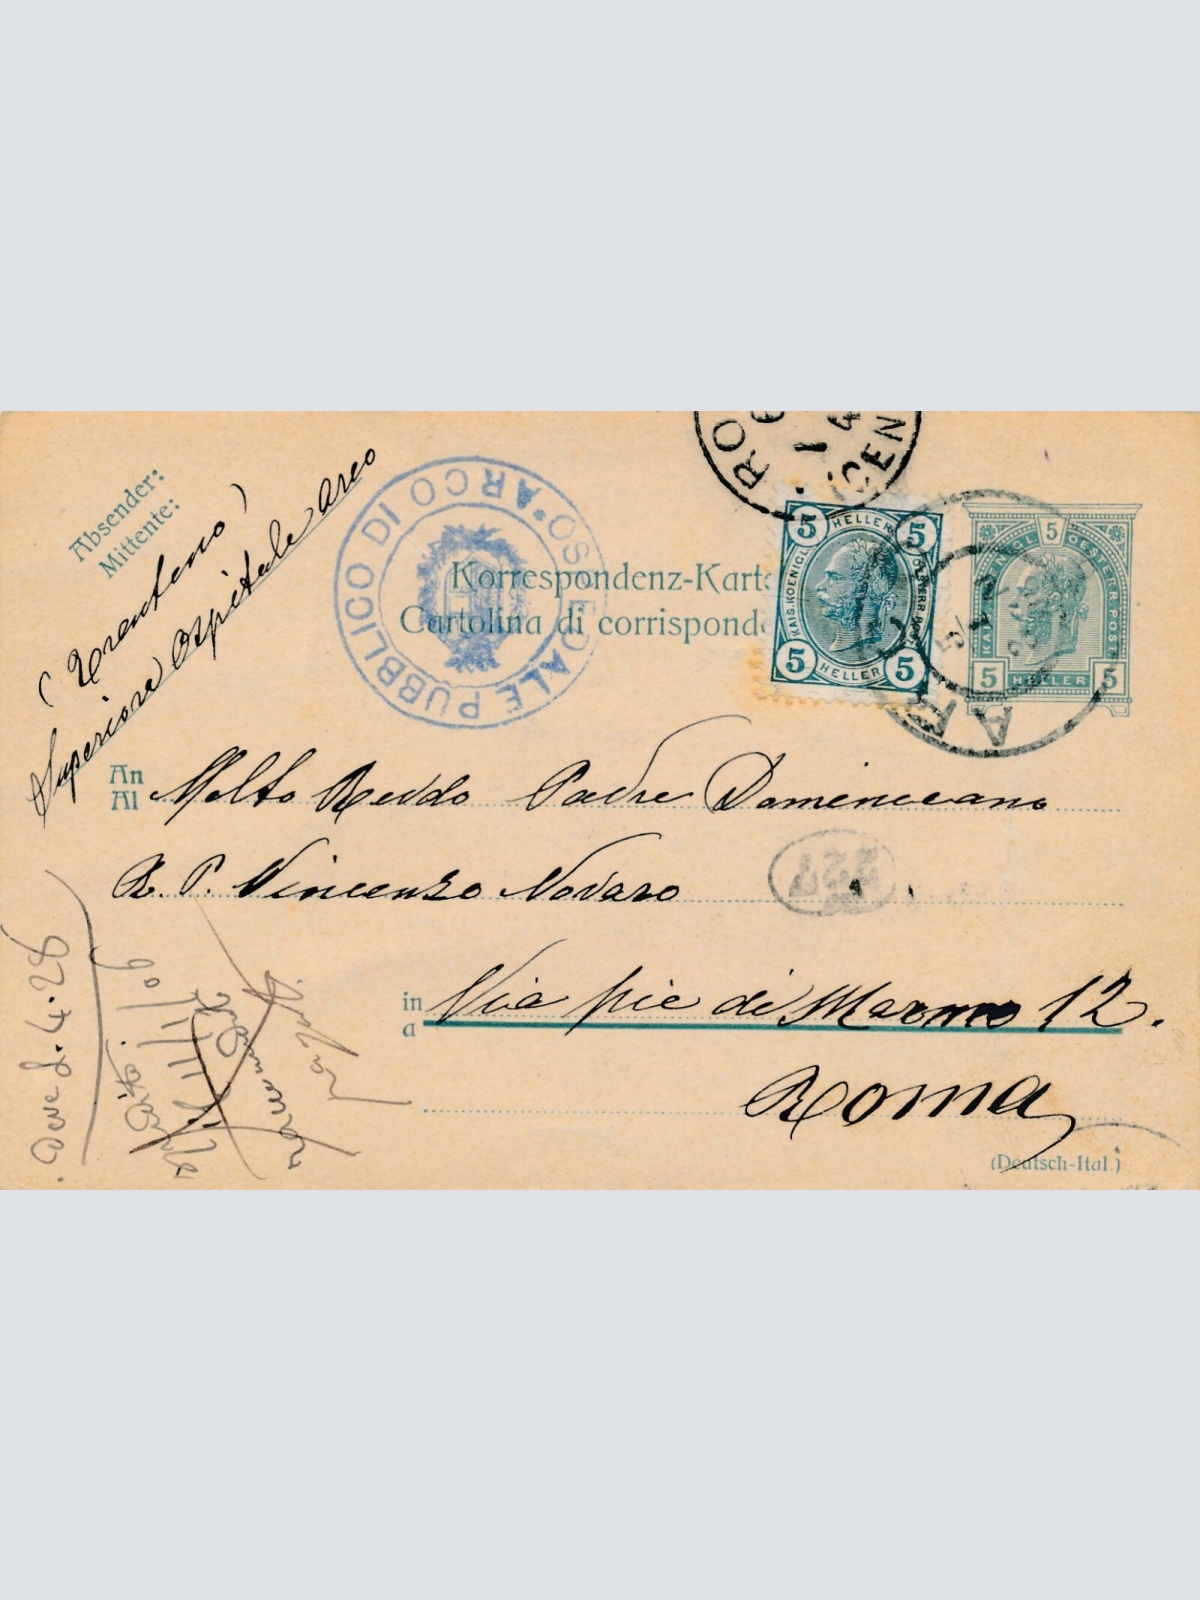 Absender:
Mittente:
(Trentino)
Superiora Ospitale Arco
OSPEDALE PUBBLICO DI ARCO
RO
CEN
Korrespondenz-Karte
Cartolina di corrispond
5 HELLER 5
KAIS. KOENIGL. OESTERR. POST
5 HELLER 5
5
KAIS. KOENIGL. OESTERR. POST
5 HELLER 5
AR
An
Al
Molto Revdo Padre Domenicano
R. P. Vincenzo Novaro
227
in
a
Via pie di Marmo 12.
Roma
(Deutsch-Ital.)
Deve L. 4.28